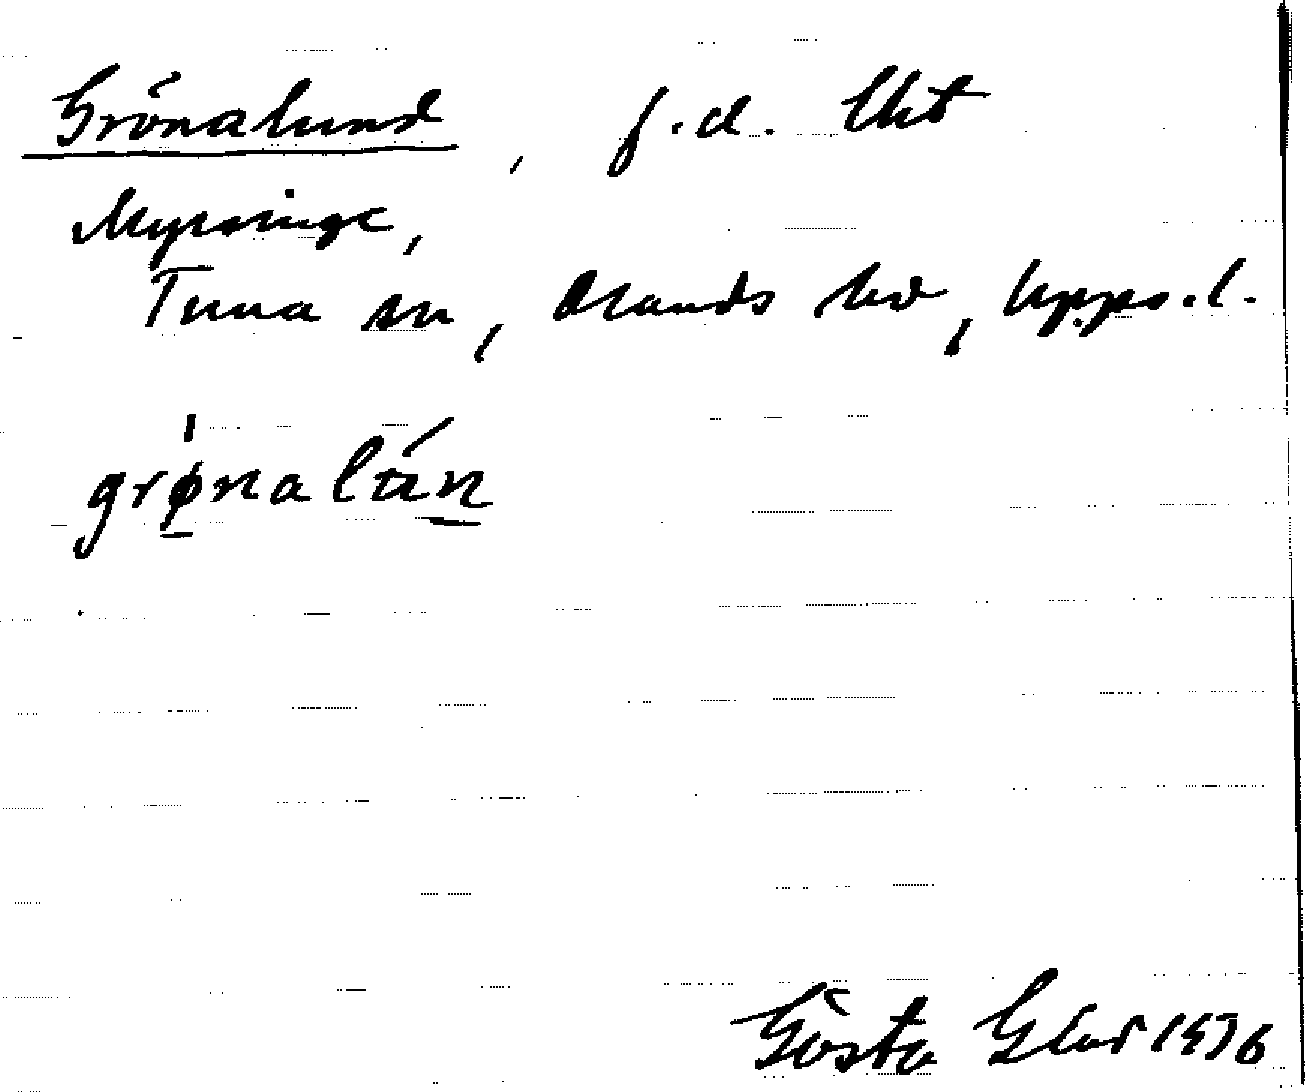 Grönalund, f.d. lht
Myrsinge,
Tuna sn, Olands hd, Upps.l.
grø̱naláṉ
Gösta Glad 1976